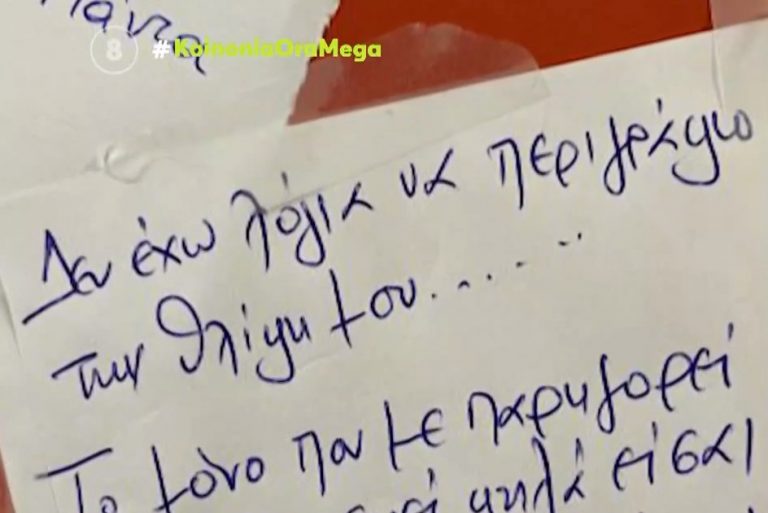 πάντα
8 #KoinoniaOraMega
Δεν έχω λόγια να περιγράψω
την θλίψη μου......
Το μόνο που με παρηγορεί
ψηλά είσαι